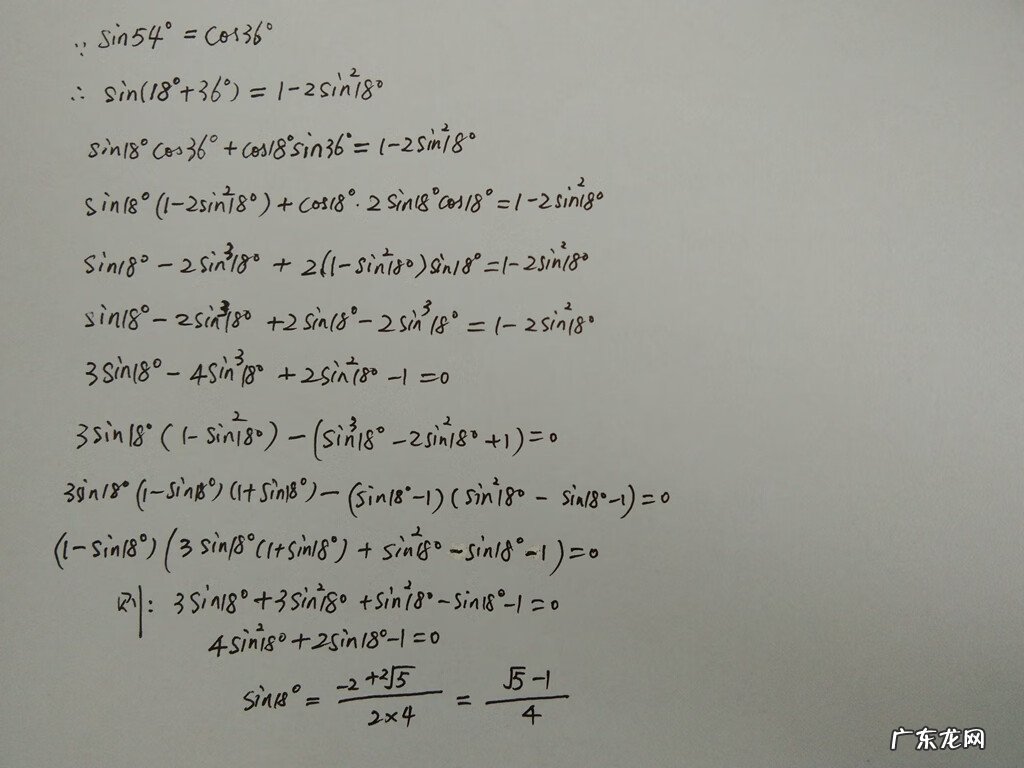 ∵ sin54° = cos36°
∴ sin(18°+36°) = 1-2sin²18°
sin18°cos36°+cos18°sin36°=1-2sin²18°
sin18°(1-2sin²18°)+cos18°·2sin18°cos18°=1-2sin²18°
sin18°-2sin³18°+2(1-sin²18°)sin18°=1-2sin²18°
sin18°-2sin³18°+2sin18°-2sin³18°=1-2sin²18°
3sin18°-4sin³18°+2sin²18°-1=0
3sin18°(1-sin²18°)-(sin³18°-2sin²18°+1)=0
3sin18°(1-sin18°)(1+sin18°)-(sin18°-1)(sin²18°-sin18°-1)=0
(1-sin18°)(3sin18°(1+sin18°)+sin²18°-sin18°-1)=0
则: 3sin18°+3sin²18°+sin²18°-sin18°-1=0
4sin²18°+2sin18°-1=0
sin18°=(-2+2√5)/(2×4)=(√5-1)/4
广东龙网